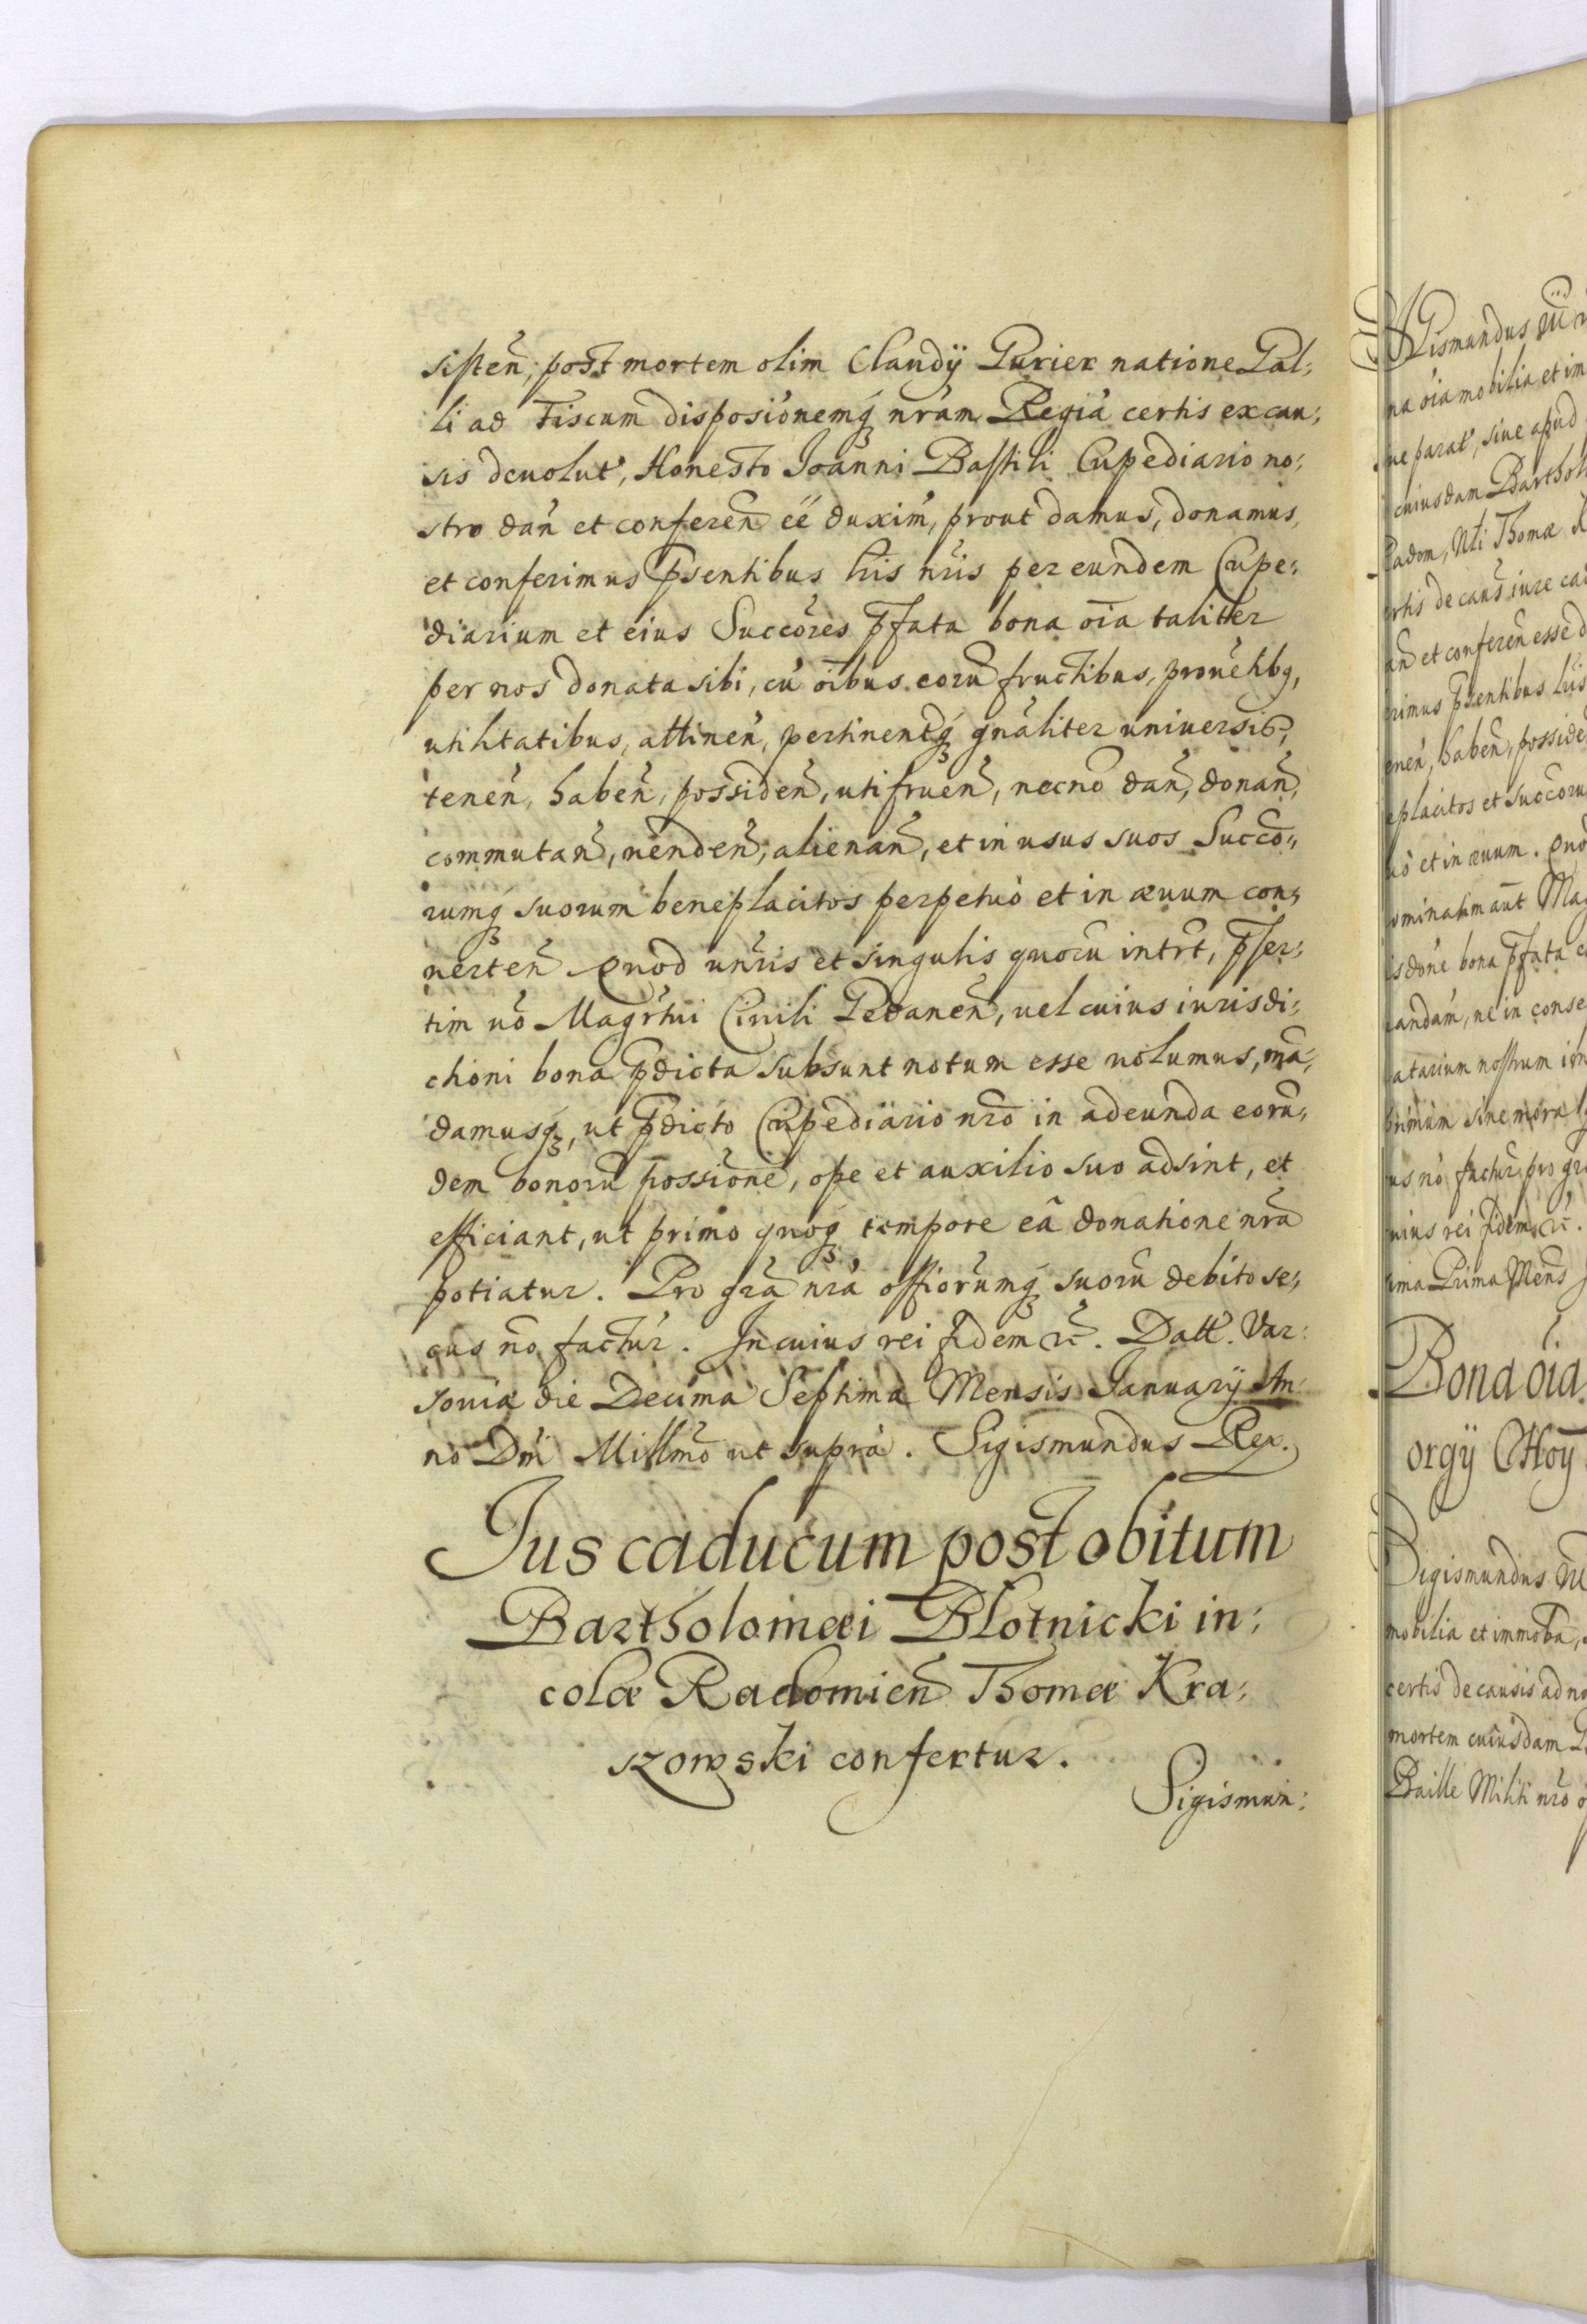 sisten̄, post mortem olim Claudÿ Purier natione Gal:
li ad Fiscum disposiōnemq́ꝫ nr̄am Regiā certis ex cau:
sis deuolut', Honesto Joanni Bastili Cupediario no:
stro dan̄ et conferen̄ eē̄ duxim', prout damus, donamus,
et conferimus p̄sentibus lr̄is nr̄is per eundem Cupe:
diarium et eius Succōres p̄fata bona oīa taliter
per nos donata sibi, cū oībus eorū fructibus, prouētibꝫ,
utilitatibus, attinen̄, pertinentq́ꝫ gn̄aliter uniuersis,
tenen̄, haben̄, possiden̄, utifruen̄, necnō dan̄, donan̄,
commutan̄, uenden̄, alienan̄, et in usus suos Succō:
rumqꝫ suorum beneplacitos perpetuò et in æuum con:
uerten̄ Quod un̄ris et singulis quorū intr̄t, p̄ser:
tim uō Magr̄tui Ciuili Gedanen̄, uel cuius iurisdi:
ctioni bona p̄dicta subsunt notum esse uolumus, mā:
damusqꝫ, ut p̄dicto Cupediario nr̄o in adeunda eorū:
dem bonorū possiōne, ope et auxilio suo adsint, et
efficiant, ut primo quoqꝫ tempore eâ donatione nr̄a
potiatur. Pro gr̄a nr̄a offiorūmqꝫ suorū debito se:
cus nō factur'. In cuius rei fidem ꝛc̄. Datt'. Var:
souiæ die Decima Septima Mensis Januarÿ An:
no Dn̄i Millmō ut suprà. Sigismundus Rex.
Jus caducum post obitum
Bartholomæi Blotnicki in:
colæ Radomien̄ Thomæ Kra:
szowski confertur.
Sigismun:
Sigismundus III
na oīa mobilia et im
ue parat', siue apud
cuiusdam Barthol
Radom, Nli Thomæ K
rtis de caus' iure cad
an̄ et conferen̄ esse d
erimus p̄sentibus lr̄is
enen̄, haben̄, posside
eplacitos et succoru
uò et in æuum. Quod
ominatim aūt Mag
is dōne bona p̄fata e
candam, nè in conse
atarium nostrum
brimùm sine mora
us nō factur', pro gr̄
uius rei fidem ꝛc̄.
ima Prima Mens̄ J
Bona oīa
orgÿ Hoÿ
Sigismundus III
mobilia et immob̄a,
certis de causis ad no
mortem cuiusdam
Baille Militi nr̄o